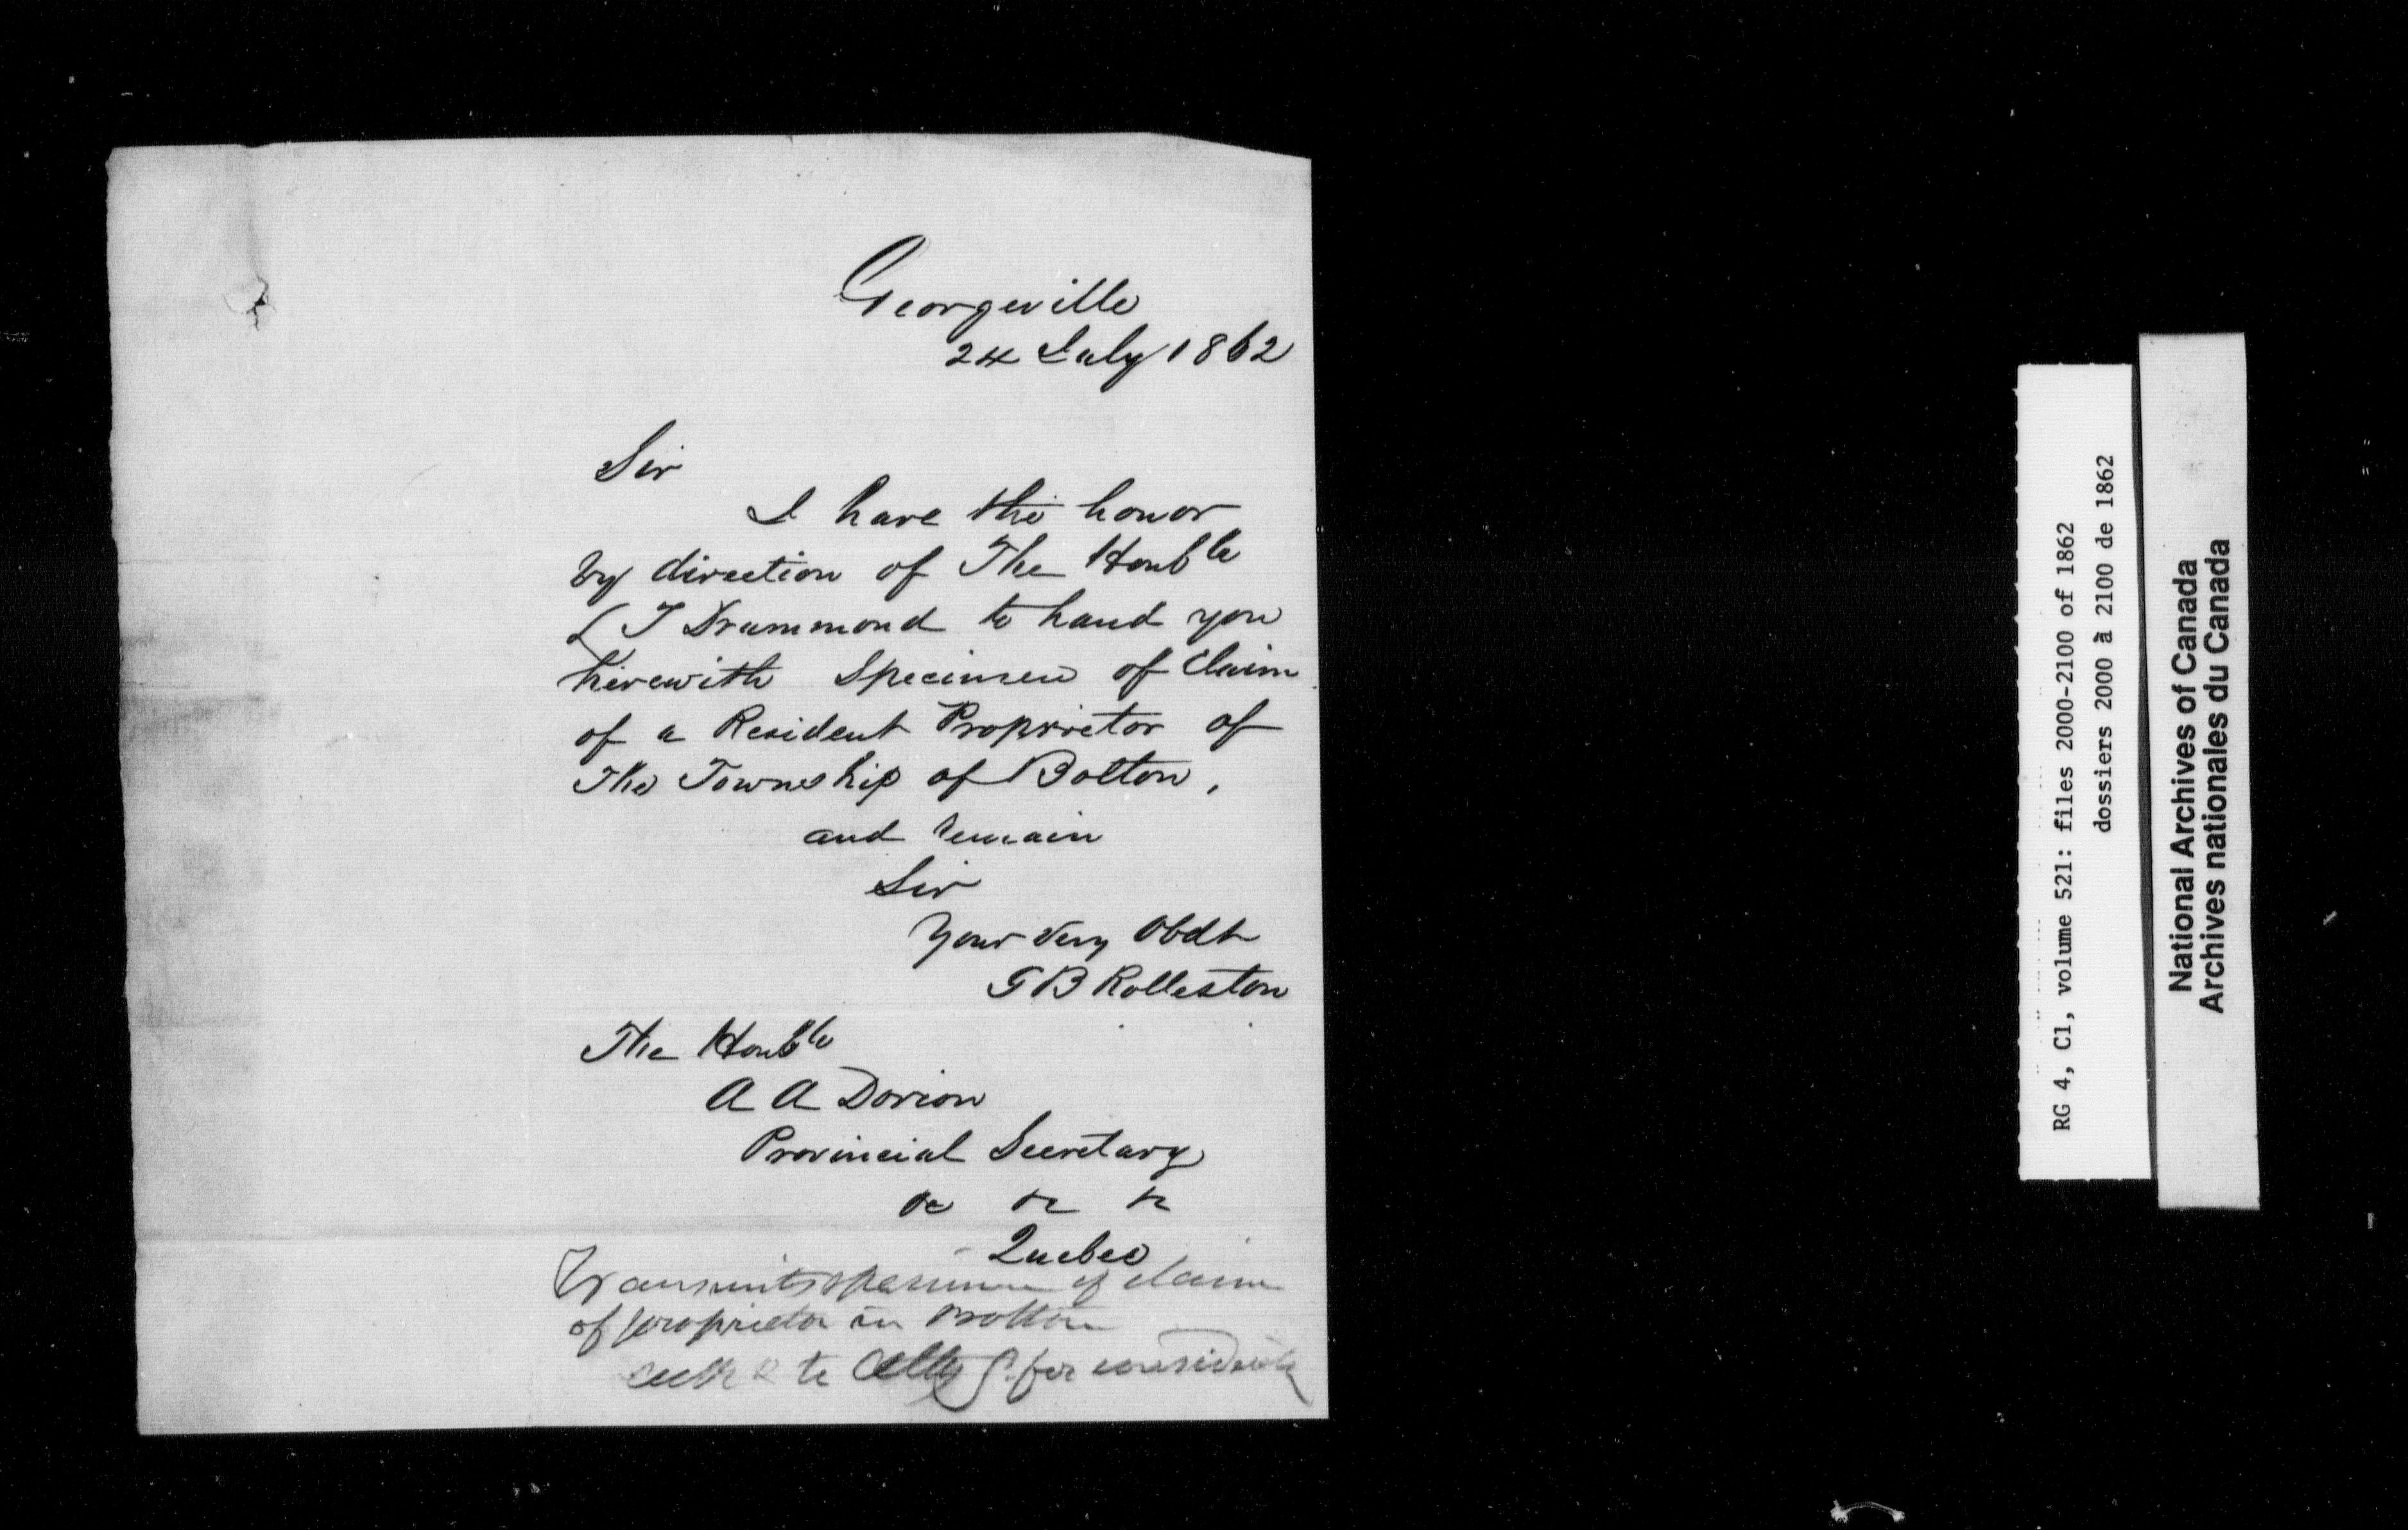 Georgeville
24 July 1862
Sir
I have the honor
by direction of The Honble
L T Drummond to hand you
herewith Specimen of Claim
of a Resident Proprietor of
The Township of Bolton,
and remain
Sir
Your very Obdt
G B Rolleston
The Honble
A A Dorion
Provincial Secretary
&c &c &c
Quebec
Transmits specimen of claim
of proprietor in Bolton
& to Atty G. for
RG 4, C1, volume 521: files 2000-2100 of 1862
dossiers 2000 à 2100 de 1862
National Archives of Canada
Archives nationales du Canada